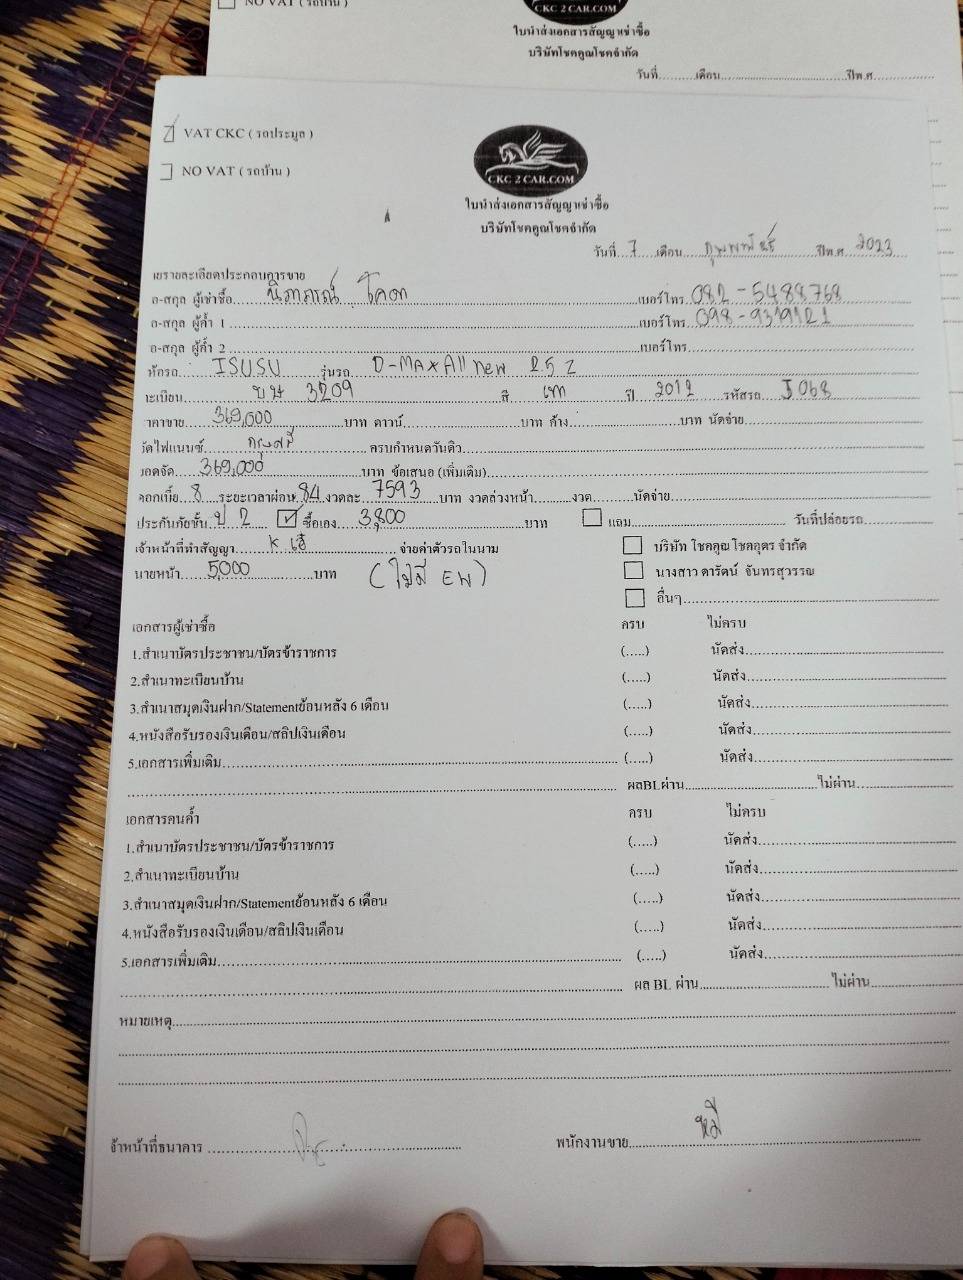 NO VAT ( รถบ้าน )
CKC 2 CAR.COM
ใบนำส่งเอกสารสัญญาเช่าซื้อ
บริษัทโชคคูณโชคจำกัด
วันที่.........เดือน................................ปีพ.ศ...............
VAT CKC ( รถประมูล )
NO VAT ( รถบ้าน )
CKC 2 CAR.COM
ใบนำส่งเอกสารสัญญาเช่าซื้อ
บริษัทโชคคูณโชคจำกัด
วันที่ 7 เดือน กุมพาพันธ์ ปีพ.ศ 2023
ยรายละเอียดประกอบการขาย
อ-สกุล ผู้เช่าซื้อ นิภาภรณ์ โคตา เบอร์โทร 082-5488768
อ-สกุล ผู้ค้ำ 1 เบอร์โทร 098-9319121
อ-สกุล ผู้ค้ำ 2 เบอร์โทร
ห้อรถ ISUSU รุ่นรถ D-MAX All new 2.5 Z
ะเบียน บษ 3209 สี เทา ปี 2012 รหัสรถ J068
าคาขาย 369,000 บาท ดาวน์ บาท ค้าง บาท นัดจ่าย
ัดไฟแนนซ์ กรุงศรี ครบกำหนดวันดิว
ยอดจัด 369,000 บาท ข้อเสนอ (เพิ่มเติม)
ดอกเบี้ย 8 ระยะเวลาผ่อน 84 งวดละ 7593 บาท งวดล่วงหน้า งวด นัดจ่าย
ประกันภัยชั้น ป 2 ซื้อเอง 3,800 บาท แถม วันที่ปล่อยรถ
เจ้าหน้าที่ทำสัญญา K เอ๋ จ่ายค่าตัวรถในนาม บริษัท โชคคูณ โชคอุดร จำกัด
นายหน้า 5,000 บาท (ไม่มี EW) นางสาว ดารัตน์ จันทรสุวรรณ
อื่นๆ
เอกสารผู้เช่าซื้อ ครบ ไม่ครบ
1.สำเนาบัตรประชาชน/บัตรข้าราชการ (.....) นัดส่ง
2.สำเนาทะเบียนบ้าน (.....) นัดส่ง
3.สำเนาสมุดเงินฝาก/Statementย้อนหลัง 6 เดือน (.....) นัดส่ง
4.หนังสือรับรองเงินเดือน/สลิปเงินเดือน (.....) นัดส่ง
5.เอกสารเพิ่มเติม (.....) นัดส่ง
ผลBLผ่าน ไม่ผ่าน
เอกสารคนค้ำ ครบ ไม่ครบ
1.สำเนาบัตรประชาชน/บัตรข้าราชการ (.....) นัดส่ง
2.สำเนาทะเบียนบ้าน (.....) นัดส่ง
3.สำเนาสมุดเงินฝาก/Statementย้อนหลัง 6 เดือน (.....) นัดส่ง
4.หนังสือรับรองเงินเดือน/สลิปเงินเดือน (.....) นัดส่ง
5.เอกสารเพิ่มเติม (.....) นัดส่ง
ผล BL ผ่าน ไม่ผ่าน
หมายเหตุ
จ้าหน้าที่ธนาคาร พนักงานขาย หมี